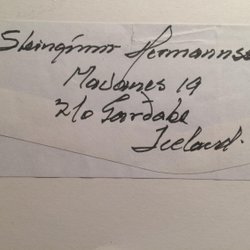 Steingrímur Hermannss
Mávanes 19
210 Gardabæ
Iceland.